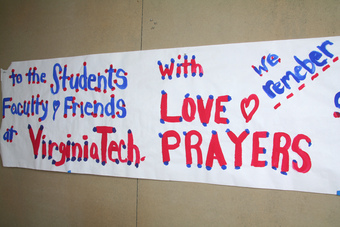 to the Students
Faculty & Friends
at Virginia Tech.
with
LOVE ♡
PRAYERS
We
remeber